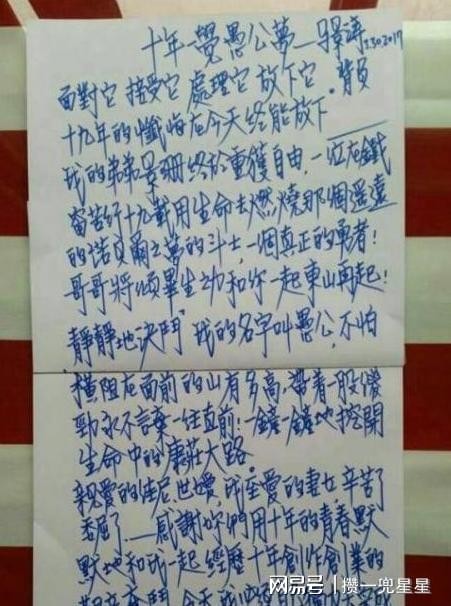 十年一覺愚公夢——馬景濤
面對它 接受它 處理它 放下它。背負
十九年的懺悔在今天終能放下
我的弟弟景珊終於重獲自由，一位在鐵
窗苦行十九載用生命去燃燒那個遙遠
的諾貝爾之夢的斗士，一個真正的勇者！
哥哥將傾畢生之功和你一起東山再起！
靜靜地決鬥 我的名字叫愚公，不怕
橫阻在面前的山有多高，帶着一股傻
勁永不言棄一往直前！一鏟一鏟地挖開
生命中的康莊大路。
親愛的佳尼、世嫒，我至愛的妻女，辛苦了
委屈了——感謝妳們用十年的青春默
默地和我一起經歷十年創作創業的
网易号 | 攒一兜星星